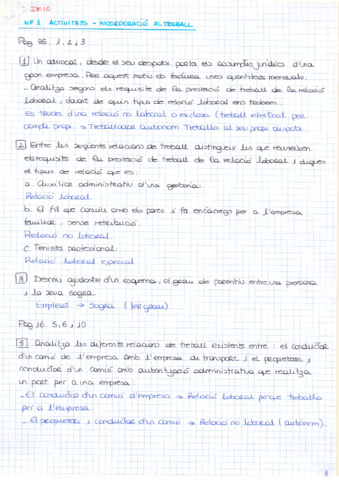 NF 1 ACTIVITATS - INCORPORACIÓ AL TREBALL
Pàg 36. 1, 2 i 3
1 Un advocat, desde el seu despatx porta els assumptes jurídics d'una
gran empresa. Per aquest motiu els factura unes quantitats mensuals.
- Analitza segons els requisits de la prestació de treball de la relació
laboral, davant de quin tipus de relació laboral ens trobem.
Es tracta d'una relació no laboral o exclosa (treball efectuat per
compte propi. → Treballador autònom Treballa al seu propi despatx
2 Entre les següents relacions de treball distingueix les que reuneixen
els requisits de la prestació de treball de la relació laboral i digues
el tipus de relació que és:
a. Auxiliar administratiu d'una gestoria:
Relació laboral
b. El fill que conviu amb els pares i fa encàrrecs per a l'empresa
familiar, sense retribució.
Relació no laboral
c. Tenista professional:
Relació laboral especial
3 Descriu, ajudante d'un esquema, el grau de parentiu entre una persona
i la seva sogra.
Empleat → Sogra (1er grau)
Pàg 16. 5, 6 i 10
5 Analitza les diferents relacions de treball existents entre: el conductor
d'un camió de l'empresa amb l'empresa de transport i el propietari i
conductor d'un camió amb autorització administrativa que realitza
un port per a una empresa.
- El conductor d'un camió d'empresa → Relació laboral perque treballa
per a l'empresa
- El propietari i conductor d'un camió → Relació no laboral (autònom).
1